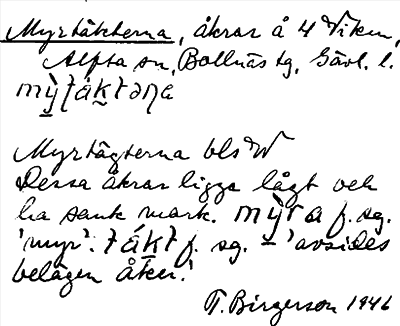 Myrtäkterna, åkrar å 4 Viken,
Alfta sn, Bollnäs tg, Gävl. l.
mỳṭák̠ṭəṇa
Myrtägterna bls W
Dessa åkrar ligga lågt och
ha sank mark. mỳra f. sg.
'myr'. ṭák̠ṭ f. sg. = 'avsides
belägen åker.'
T. Birgerson 1946